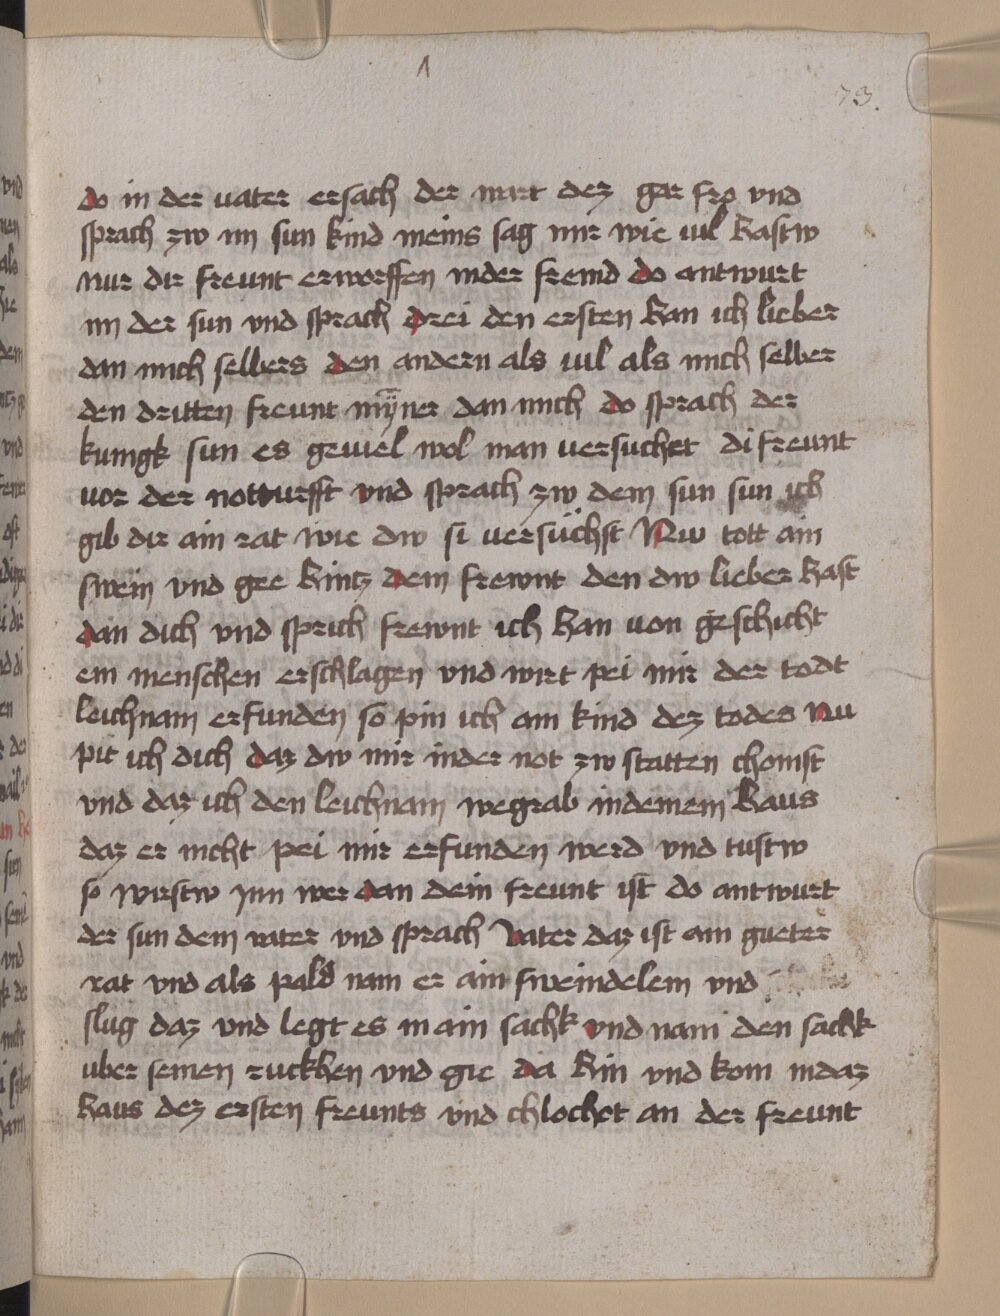 73.
do in der uater ersach der wart dez gar fro vnd
sprach zw im sun kind meins sag mir wie uil hastw
nur dir freunt erworffen inder fremd do antwurt
im der sun vnd sprach drei den ersten han ich lieber
dan mich selbers den andern als uil als mich selber
den dritten freunt mÿner dan mich do sprach der
kunigk sun es geuiel wol man versuchet di freunt
vor der notturfft vnd sprach zw dem sun sun ich
gib dir ain rat wie dw si uersuchst Nw tott ain
swein vnd gee hintz dem frewnt den dw lieber hast
dan dich vnd sprich frewnt ich han uon geschicht
ein menschen erschlagen vnd wirt pei mir der todt
leichnam erfunden so pin ich ain kind dez todes Nu
pit ich dich daz dw mir inder not zw statten chomst
vnd daz ich den leichnam wegrab indeinem haus
daz er nicht pei mir erfunden werd vnd tustw
so wirstw ynn wer dan dein freunt ist do antwurt
der sun dem vater vnd sprach Vater daz ist ain gueter
rat vnd als pald nam er ain sweindelein vnd
slug daz vnd legt es in ain sachk vnd nam den sachk
uber seinen ruckhen vnd gie da hin vnd kom indaz
haus dez ersten freunts vnd chlochet an der freunt